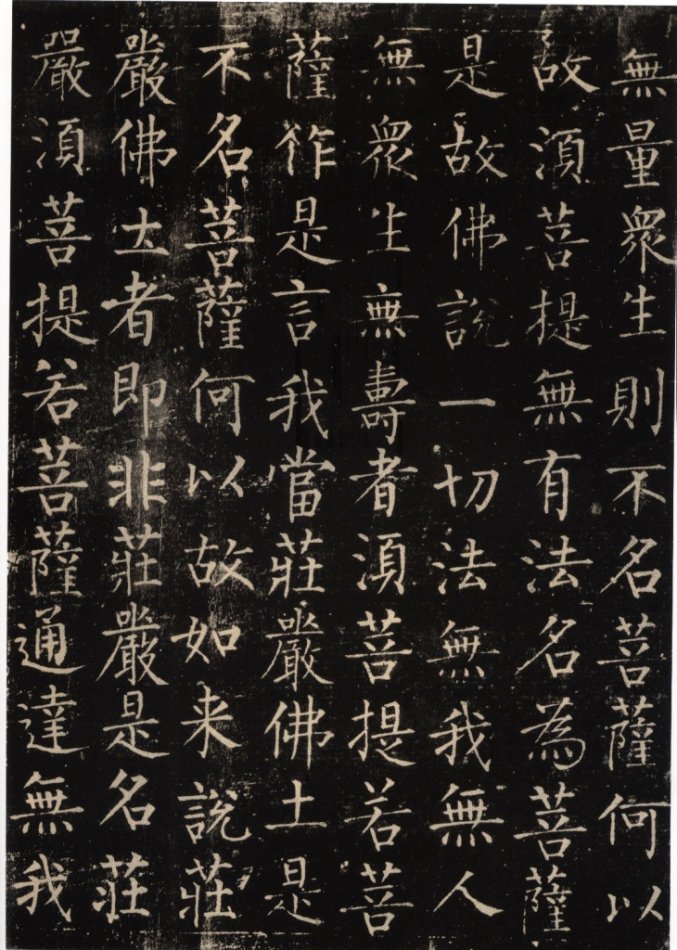 無量眾生則不名菩薩何以
故湏菩提無有法名為菩薩
是故佛說一切法無我無人
無眾生無壽者湏菩提若菩
薩作是言我當莊嚴佛土是
不名菩薩何以故如来說莊
嚴佛土者即非莊嚴是名莊
嚴湏菩提若菩薩通達無我